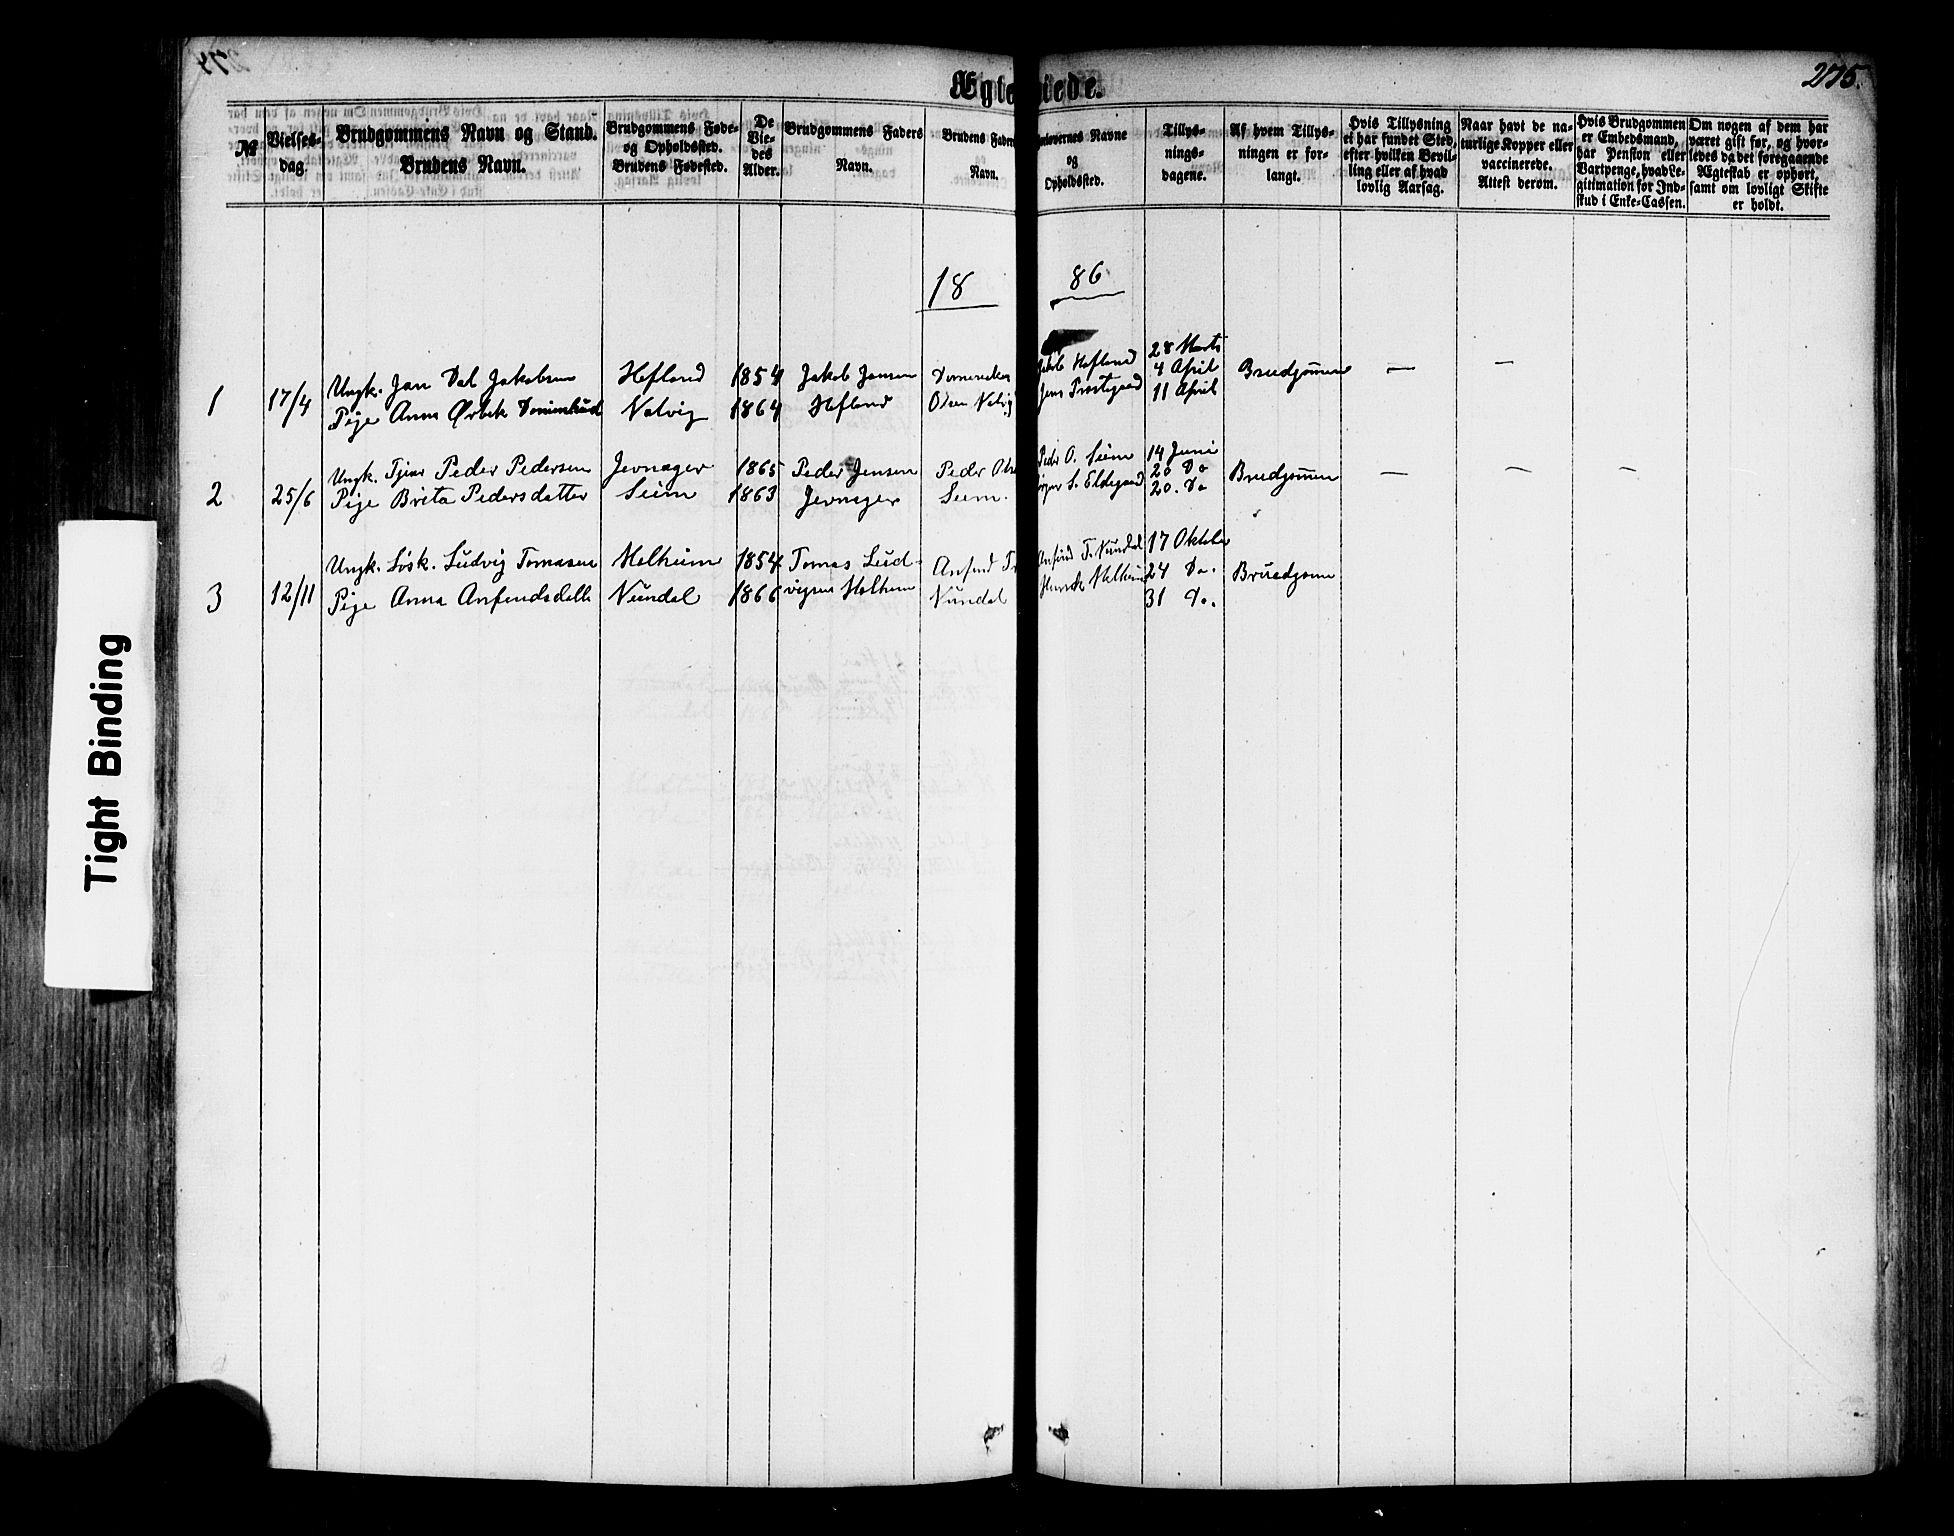 275.
Ægte
tede.
№
Vielses-
dag.
Brudgommens Navn og Stand.
Brudens Navn.
Brudgommens Føde-
og Opholdssted.
Brudens Fødested.
De
Vie-
des
Alder.
Brudgommens Faders
Navn.
Brudens Fader
Navn.
Forlovernes Navne
og
Opholdssted.
Tillys-
nings-
dagene.
Af hvem Tillys-
ningen er for-
langt.
Hvis Tillysning
ei har fundet Sted,
efter hvilken Bevil-
ling eller af hvad
lovlig Aarsag.
Naar havt de na-
turlige Kopper eller
vaccinerede.
Attest derom.
Hvis Brudgommen
er Embedsmand,
har Pension eller
Vartpenge, hvad Le-
gitimation for Ind-
skud i Enke-Cassen.
Om nogen af dem har
været gift før, og hvor-
ledes da det foregaaende
Ægteskab er ophørt,
samt om lovligt Skifte
er holdt.
18 86
1
17/4
Ungk. Jan Dal Jakobsen
Pige Anna Ørbek
Hefland
Natvig
1854
1864
Jakob Jansen
Hefland
Olsen Natvig
Jakob Hefland
Jens Prestegaard
28 Marts
4 April
11 April
Bruedgomen
—
—
2
25/6
Ungk. Tjener Peder Pedersen
Pige Brita Pedersdatter
Jevnager
Seim
1865
1863
Peder Jensen
Jevnager
Peder Ols
Seem.
Peder O. Seim
S. Eldegaard
14 Juni
20 Do
20. Do
Bruedgomen
—
—
—
3
12/11
Ungk. Losk. Ludvig Tomasen
Pige Anna Anfindsdatte
Molheim
Nundal
1854
1866
Tomas Lud-
vigsen Molheim
Anfind T
Nundal
Anfind T. Nundal
Henrik Molheim
17 Oktober
24 Do.
31 Do.
Bruedgom
Tight Binding